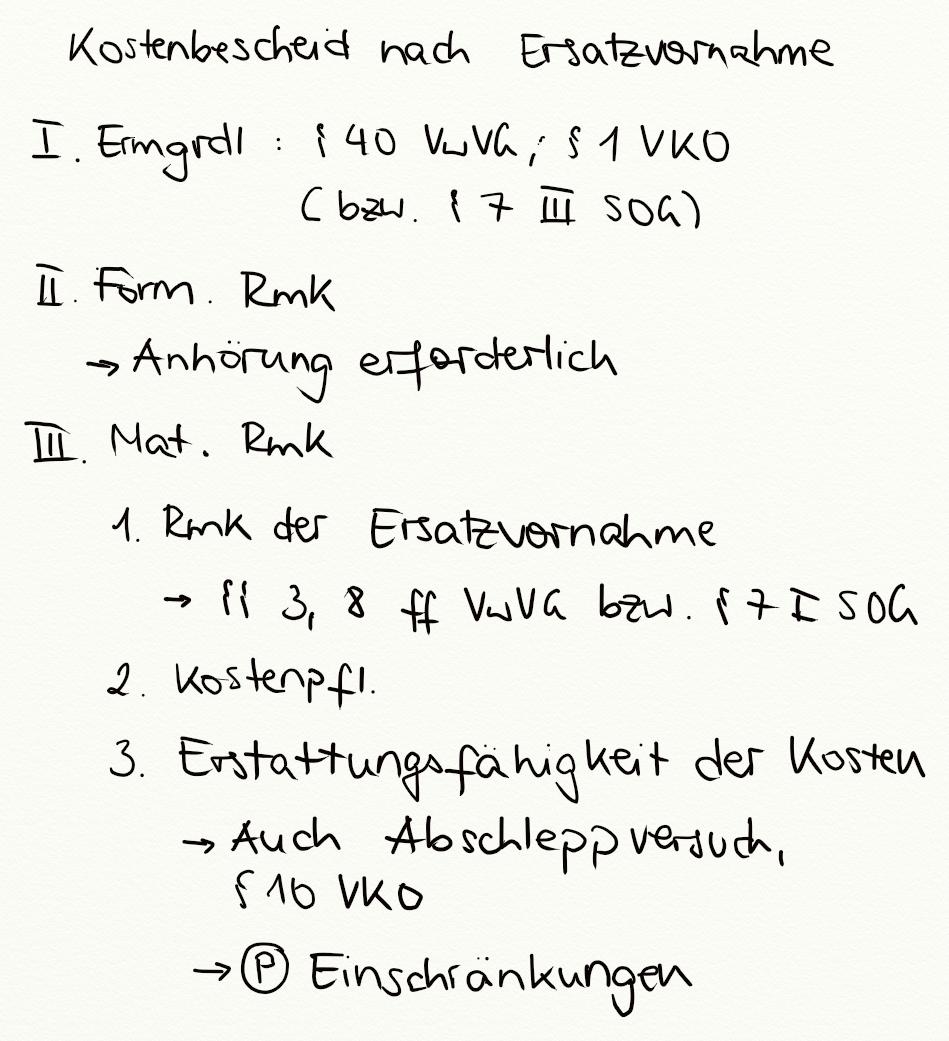 Kostenbescheid nach Ersatzvornahme
I. Ermgrdl : § 40 VwVG ; § 1 VKO
(bzw. § 7 III SOG)
II. Form. Rmk
→ Anhörung erforderlich
III. Mat. Rmk
1. Rmk der Ersatzvornahme
→ §§ 3, 8 ff VwVG bzw. § 7 I SOG
2. Kostenpfl.
3. Erstattungsfähigkeit der Kosten
→ Auch Abschleppversuch,
§ 10 VKO
→ Ⓟ Einschränkungen